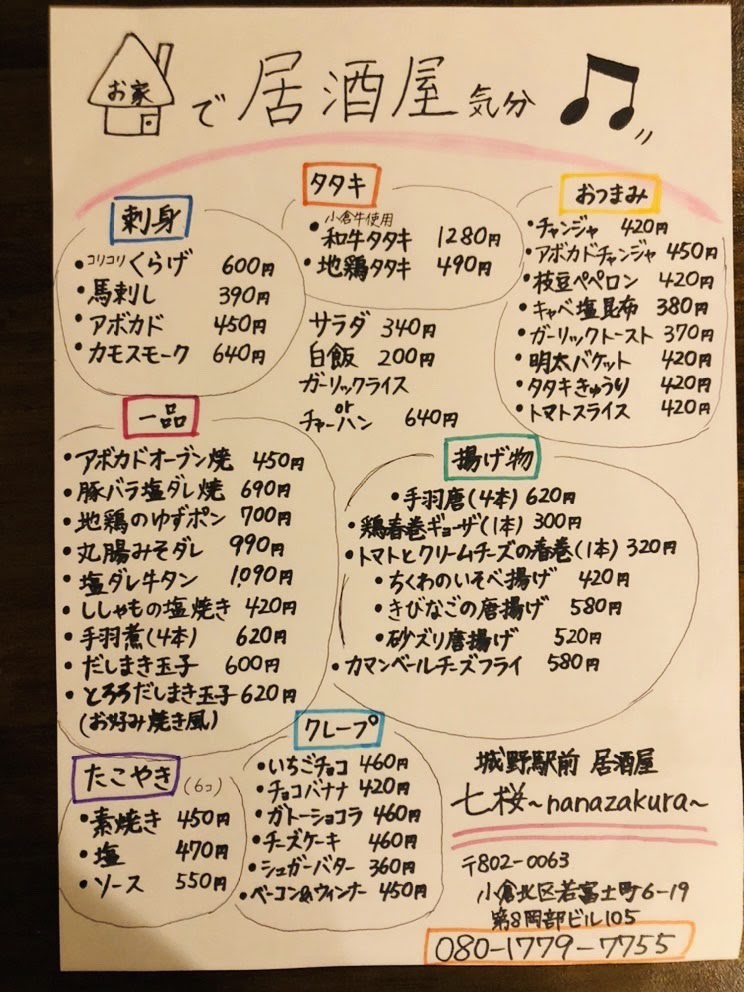 お家で居酒屋気分
刺身
・コリコリくらげ 600円
・馬刺し 390円
・アボカド 450円
・カモスモーク 640円
タタキ
小倉牛使用
・和牛タタキ 1280円
・地鶏タタキ 490円
サラダ 340円
白飯 200円
ガーリックライス
or
チャーハン 640円
おつまみ
・チャンジャ 420円
・アボカドチャンジャ 450円
・枝豆ペペロン 420円
・キャベ塩昆布 380円
・ガーリックトースト 370円
・明太バケット 420円
・タタキきゅうり 420円
・トマトスライス 420円
一品
・アボカドオーブン焼 450円
・豚バラ塩ダレ焼 690円
・地鶏のゆずポン 700円
・丸腸みそダレ 990円
・塩ダレ牛タン 1,090円
・ししゃもの塩焼き 420円
・手羽煮(4本) 620円
・だしまき玉子 600円
・とろろだしまき玉子 620円
(お好み焼き風)
揚げ物
・手羽唐(4本) 620円
・鶏春巻ギョーザ(1本) 300円
・トマトとクリームチーズの春巻(1本) 320円
・ちくわのいそべ揚げ 420円
・きびなごの唐揚げ 580円
・砂ズリ唐揚げ 520円
・カマンベールチーズフライ 580円
たこやき(6コ)
・素焼き 450円
・塩 470円
・ソース 550円
クレープ
・いちごチョコ 460円
・チョコバナナ 420円
・ガトーショコラ 460円
・チーズケーキ 460円
・シュガーバター 360円
・ベーコン&ウィンナー 450円
城野駅前 居酒屋
七桜~nanazakura~
〒802-0063
小倉北区若富士町6-19
第8岡部ビル105
080-1779-7755